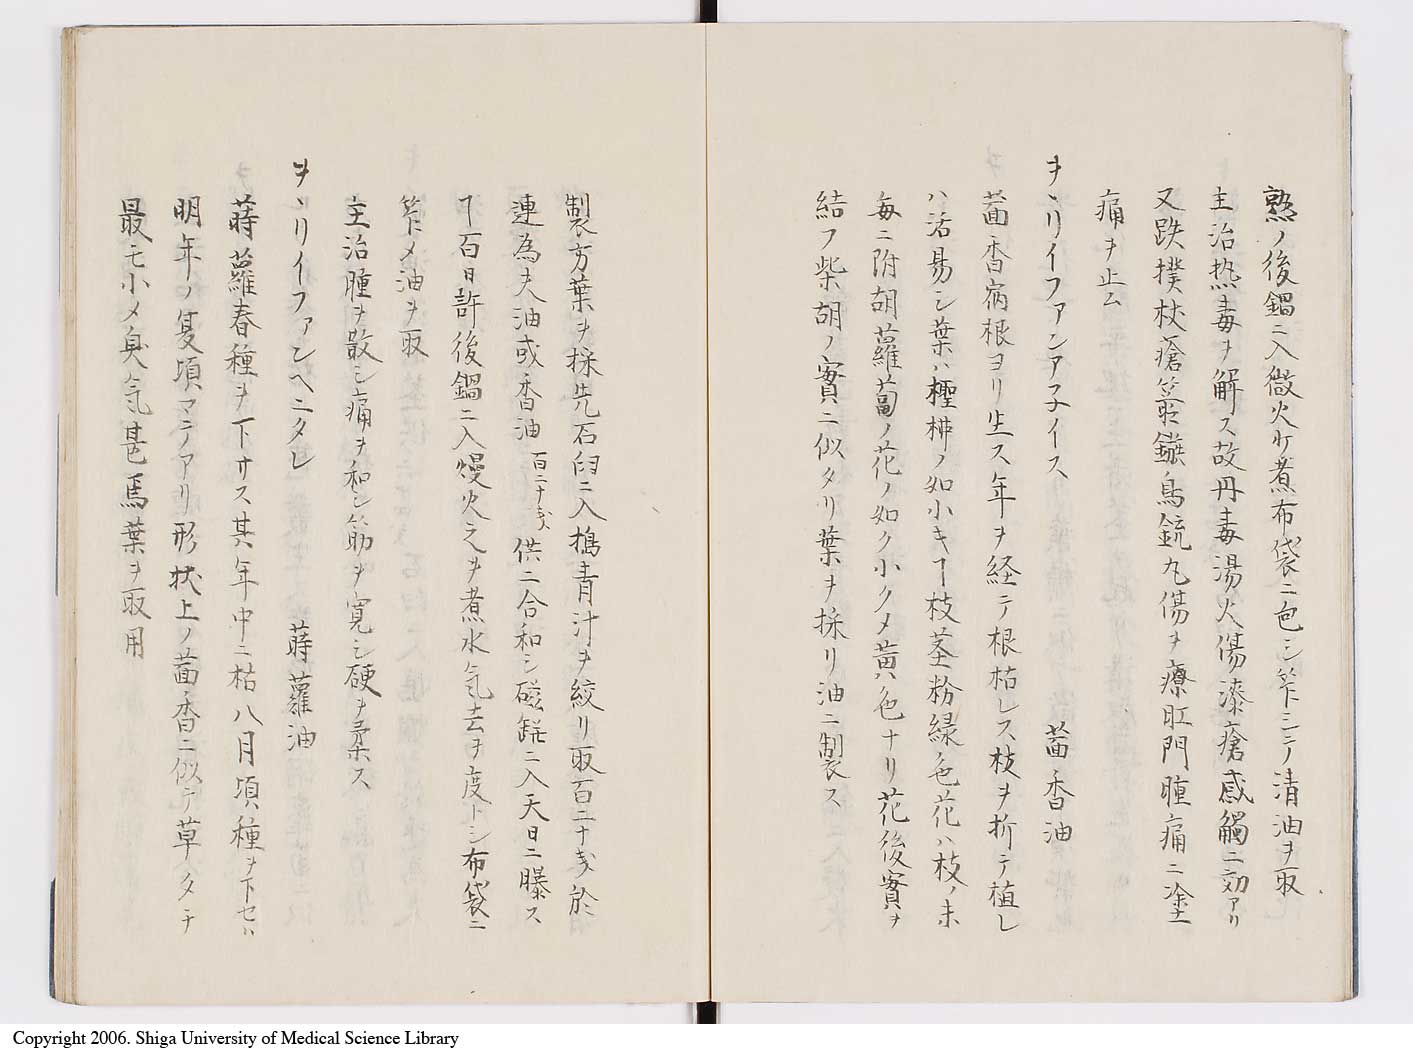 熟ノ後鍋ニ入微火ケ煮布袋ニ包シ笮シテ清油ヲ取
主治热毒ヲ解ス故丹毒湯火傷漆瘡感觸ニ効アリ
又跌撲杖瘡箭鏃鳥銃丸傷ヲ療肛門腫痛ニ塗
痛ヲ止ム
ヲヽリイファンアネイス 茴香油
茴香宿根ヨリ生ス年ヲ経テ根枯レス枝ヲ折テ植レ
ハ活易シ葉ハ檉柳ノ如小キ丁枝茎粉緑色花ハ枝ノ末
毎ニ附胡蘿蔔ノ花ノ如ク小クメ黄色ナリ花後實ヲ
結フ柴胡ノ實ニ似タリ葉ヲ採リ油ニ製ス
製方葉ヲ採先石臼ニ入搗青汁ヲ絞リ取百二十戔於
連為夫油或香油百二十戔供ニ合和シ磁鋌ニ入天日ニ曝ス
丁百日許後鍋ニ入慢火之ヲ煮水気去ヲ度トシ布袋ニ
笮メ油ヲ取
主治腫ヲ散シ痛ヲ和シ筋ヲ寛シ硬ヲ柔ス
ヲヽリイファンヘニタレ 蒔蘿油
蒔蘿春種ヲ下サス其年中ニ枯八月頃種ヲ下セハ
明年ノ夏頃マテアリ形状上ノ茴香ニ似テ草タチ
最モ小メ臭気甚焉葉ヲ取用
Copyright 2006. Shiga University of Medical Science Library